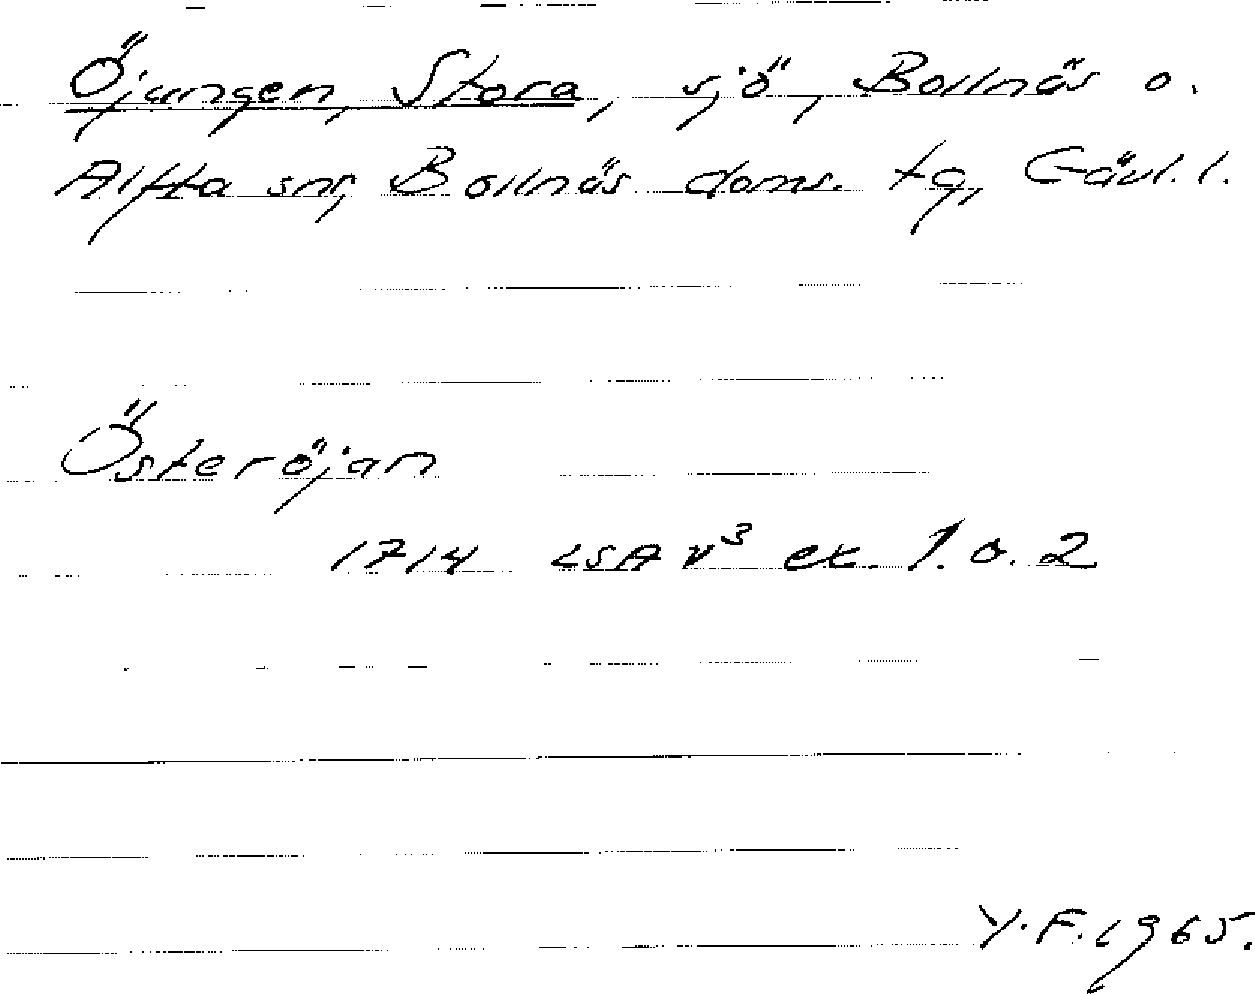 Öjungen, Stora, sjö, Bollnäs o.
Alfta snr, Bollnäs doms. tg, Gävl. l.
Österöjan
1714 LSA V³ ex. 1. o. 2
Y. F. 1965.